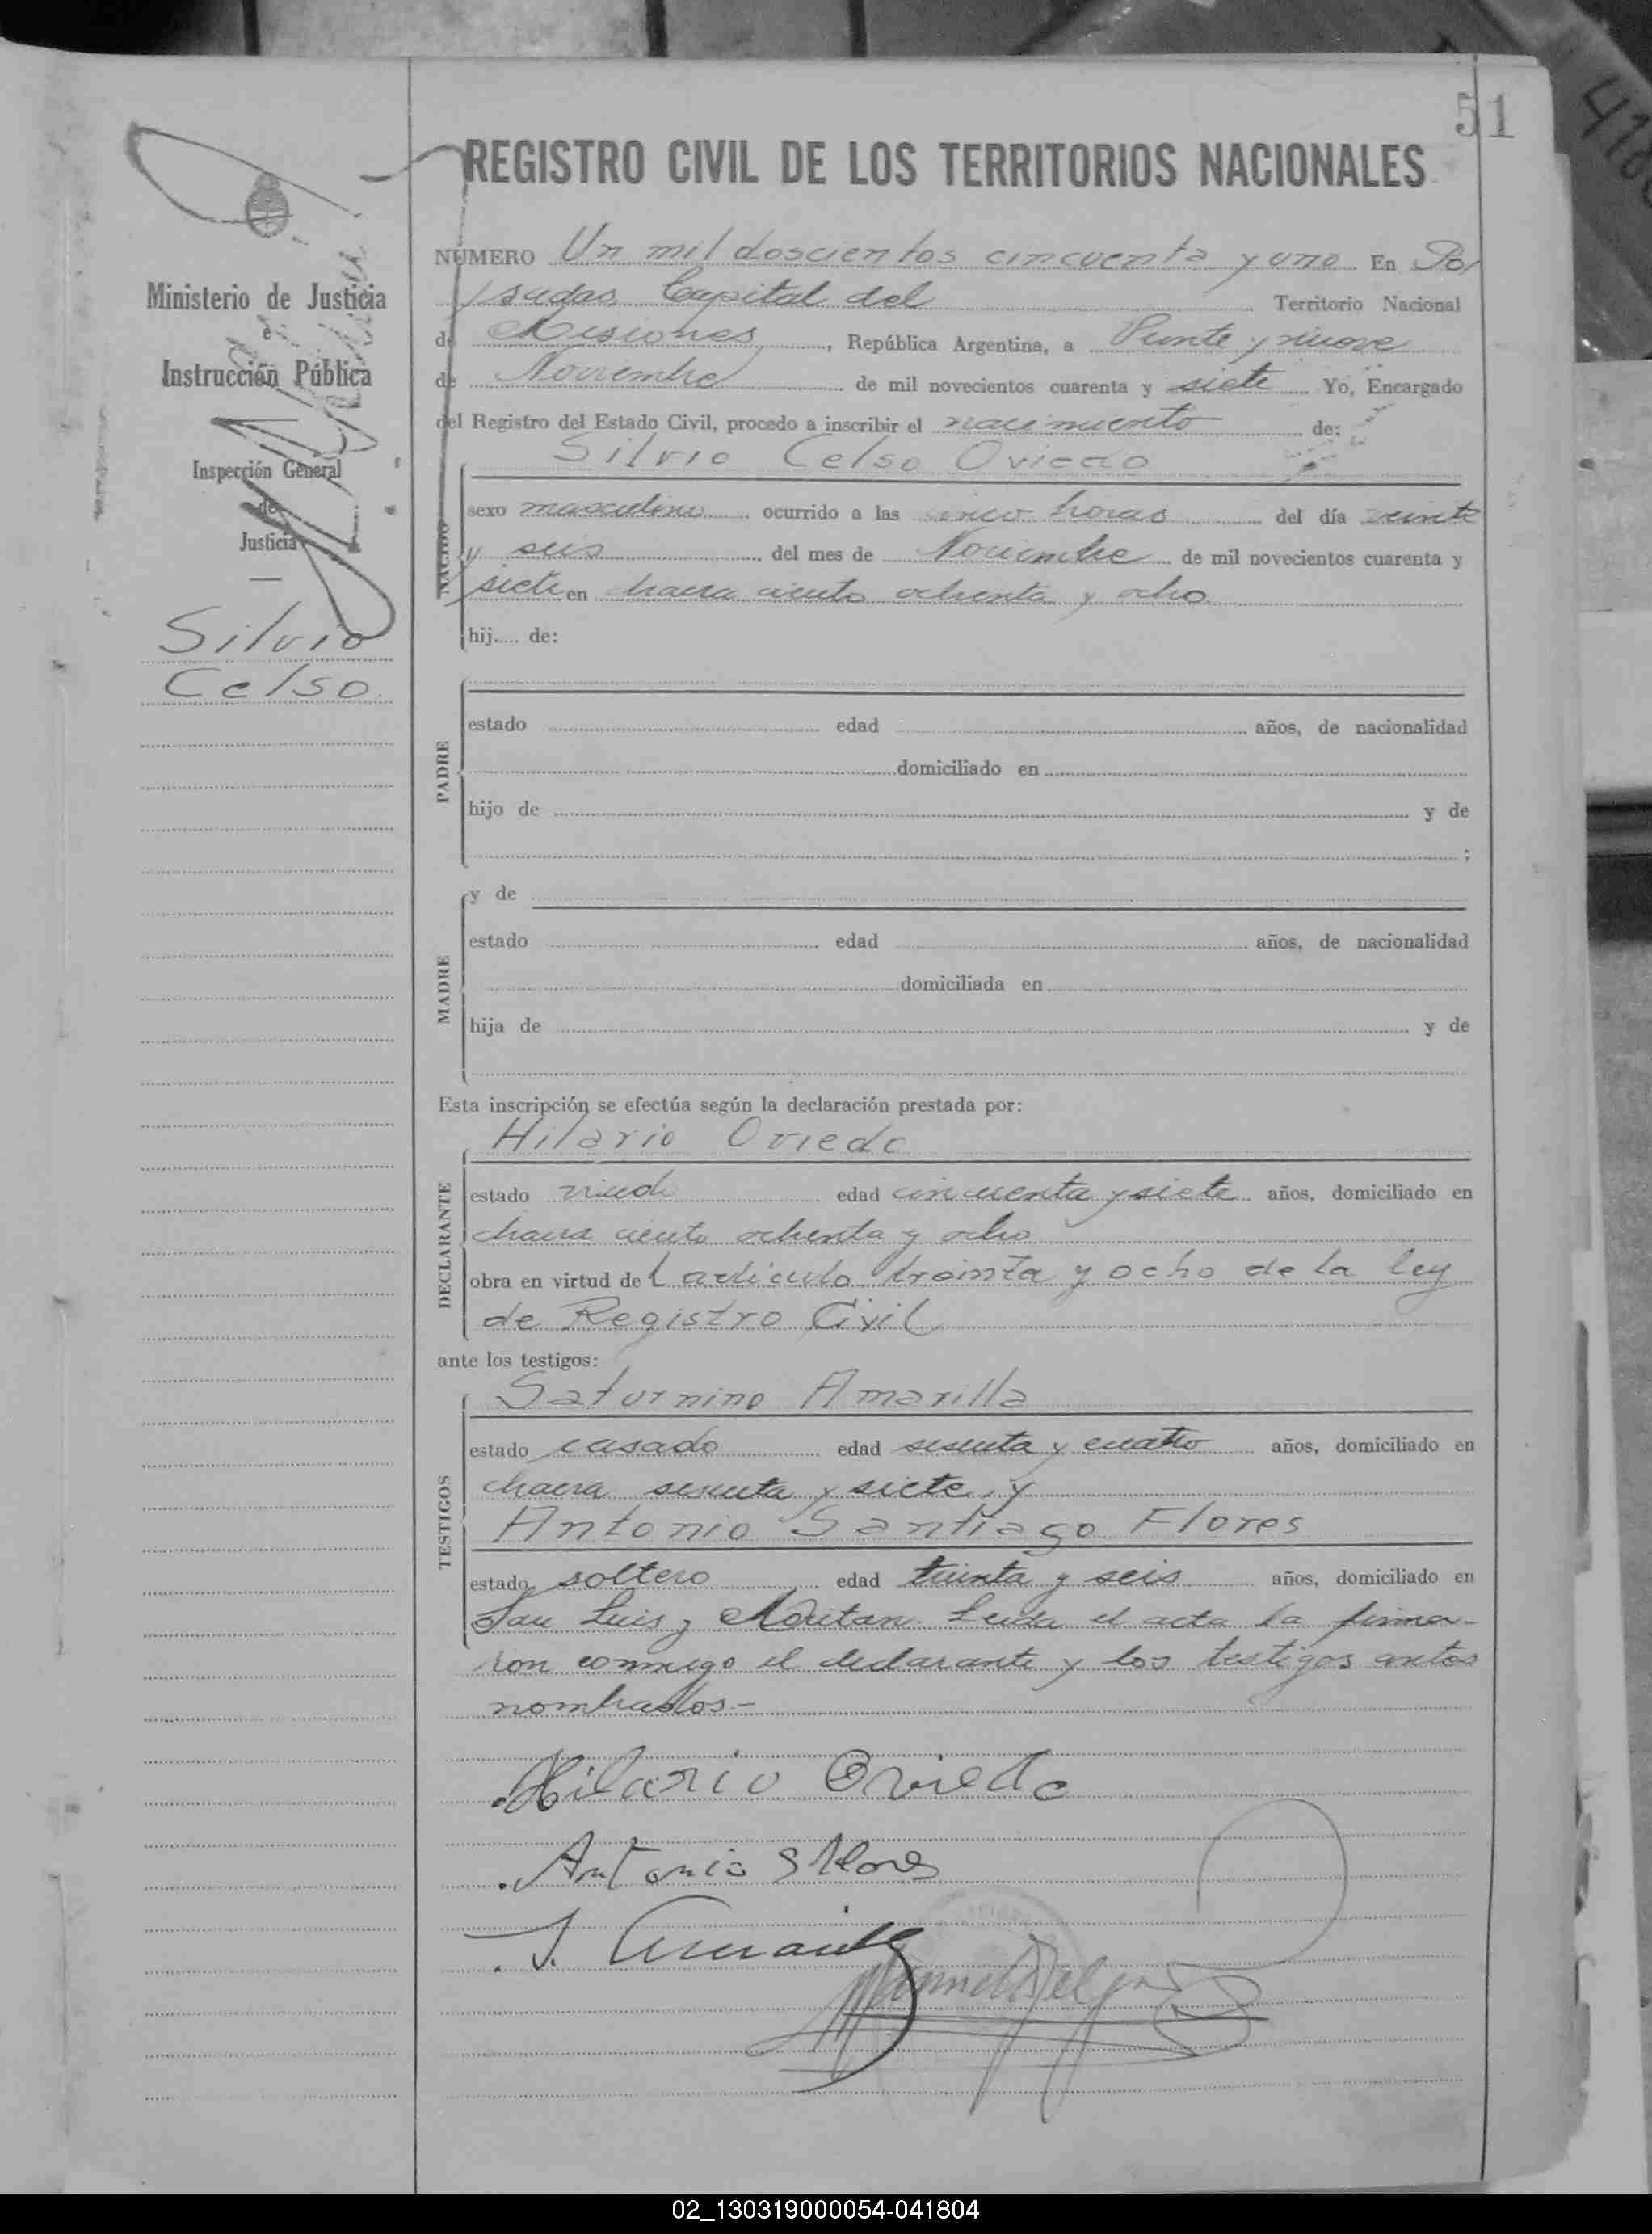 51
REGISTRO CIVIL DE LOS TERRITORIOS NACIONALES
Ministerio de Justicia
é
Instrucción Pública
Inspección General
de
Justicia
Silvio
Celso
NÚMERO Un mil doscientos cincuenta y uno En Po/
/sadas Capital del Territorio Nacional
de Misiones, República Argentina, a Veinte y nueve
de Noviembre de mil novecientos cuarenta y siete Yo, Encargado
del Registro del Estado Civil, procedo a inscribir el nacimiento de:
Silvio Celso Oviedo
NACIDO
sexo masculino ocurrido a las cinco horas del día veinte
y seis del mes de Noviembre de mil novecientos cuarenta y
siete en chacra ciento ochenta y ocho
hij.... de:
PADRE
estado edad años, de nacionalidad
domiciliado en
hijo de y de
;
MADRE
y de
estado edad años, de nacionalidad
domiciliada en
hija de y de
Esta inscripción se efectúa según la declaración prestada por:
Hilario Oviedo
DECLARANTE
estado viudo edad cincuenta y siete años, domiciliado en
chacra ciento ochenta y ocho
obra en virtud del artículo treinta y ocho de la ley
de Registro Civil
ante los testigos:
Saturnino Amarilla
TESTIGOS
estado casado edad sesenta y cuatro años, domiciliado en
chacra sesenta y siete, y
Antonio Santiago Flores
estado soltero edad treinta y seis años, domiciliado en
San Luis y Leida el acta la firma-
ron conmigo el declarante y los testigos antes
nombrados.-
Hilario Oviedo
Antonio S Flores
S. Amarilla
02_130319000054-041804